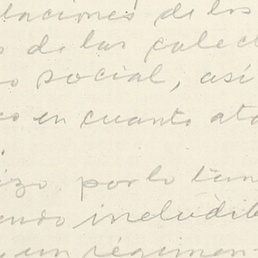 taciones de los
s de las colect
o social, así
co en cuanto ata
izo por lo tan
endo includib
un régimen